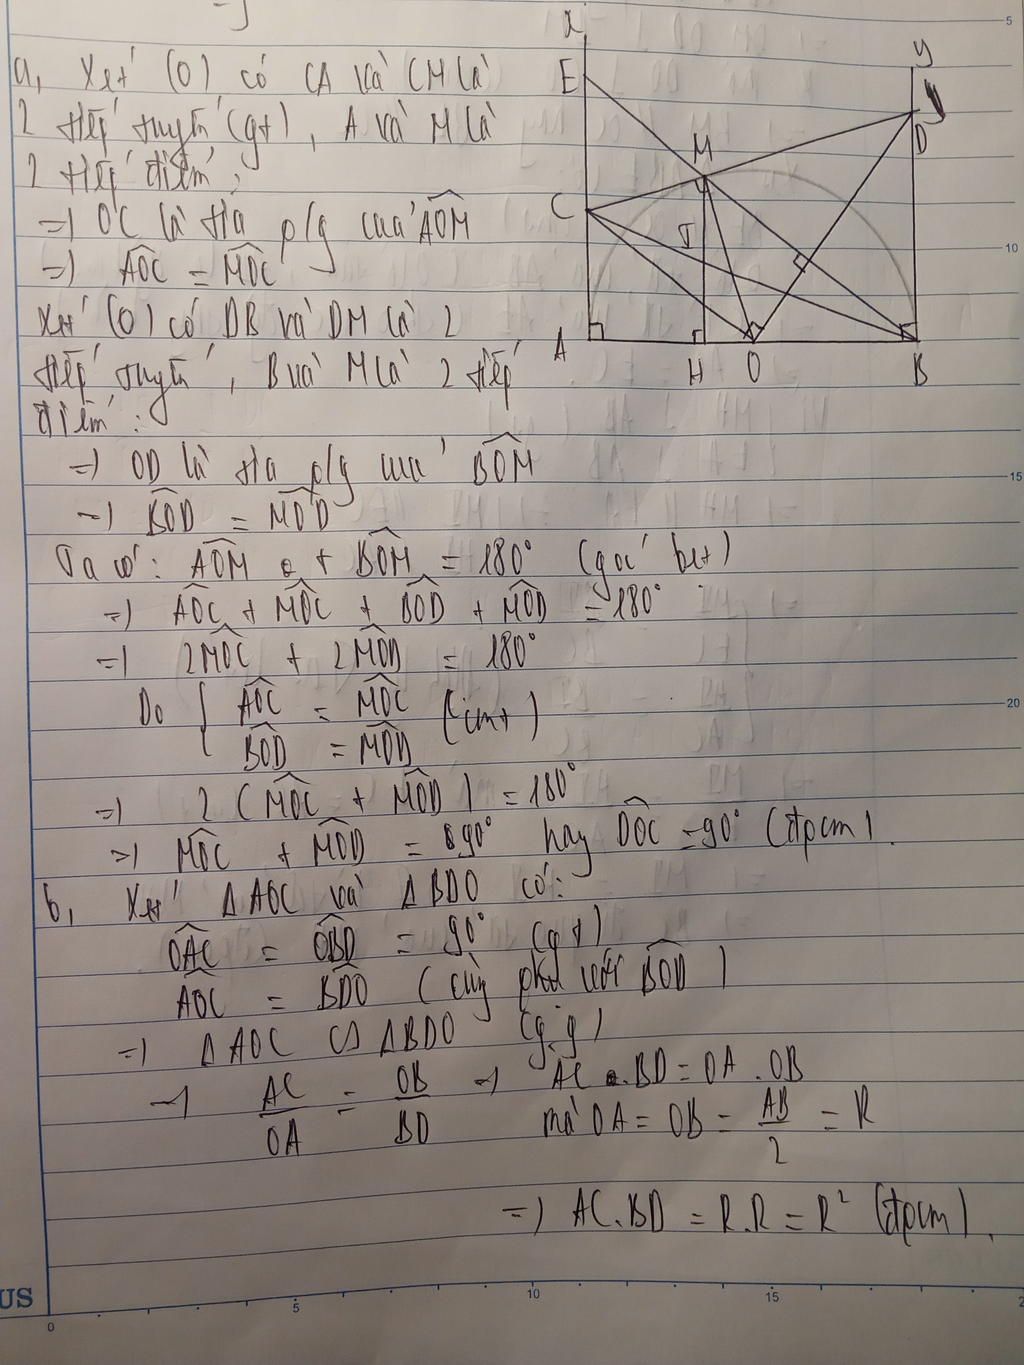 a, Xét (O) có CA và CM là
2 tiếp tuyến (gt), A và M là
2 tiếp điểm;
=) OC là tia p/g của AOM
=) AOC = MOC
Xét (O) có DB và DM là 2
tiếp tuyến, B và M là 2 tiếp
điểm:
=) OD là tia p/g của BOM
=) BOD = MOD
Ta có: AOM + BOM = 180° (góc bẹt)
=) AOC + MOC + BOD + MOD = 180°
=) 2MOC + 2MOD = 180°
Do { AOC = MOC (cmt)
BOD = MOD
=) 2 (MOC + MOD) = 180°
=) MOC + MOD = 90° hay DOC = 90° (đpcm).
b, Xét Δ AOC và Δ BDO có:
OAC = OBD = 90° (gt)
AOC = BDO (cùng phụ với BOD)
=) Δ AOC ∽ Δ BDO (g.g)
=) AC/OA = OB/BD =) AC . BD = OA . OB
mà OA = OB = AB/2 = R
=) AC.BD = R.R = R² (đpcm).
x
y
E
M
D
C
J
A
H
O
B
5
10
15
20
US
0
5
10
15
2